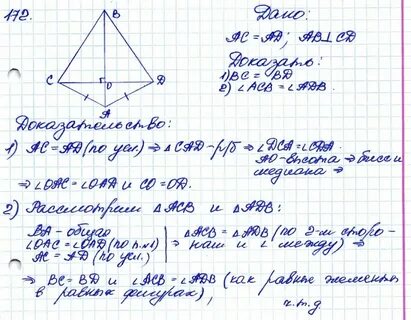 172.
Дано:
AC = AD; AB ⊥ CD
Доказать:
1) BC = BD
2) ∠ACB = ∠ADB.
B
C
D
O
A
Доказательство:
1) AC = AD (по усл.) ⇒ △CAD - р/б ⇒ ∠DCA = ∠CDA.
AO - высота ⇒ бисс и
медиана ⇒
⇒ ∠OAC = ∠OAD и CO = OD.
2) Рассмотрим △ACB и △ADB:
BA - общая
∠OAC = ∠OAD (по п.№1)
AC = AD (по усл.)
⇒ △ACB = △ADB (по 2-м сторо-
нам и ∠ между) ⇒
⇒ BC = BD и ∠ACB = ∠ADB (как равные элементы
в равных фигурах),
ч.т.д